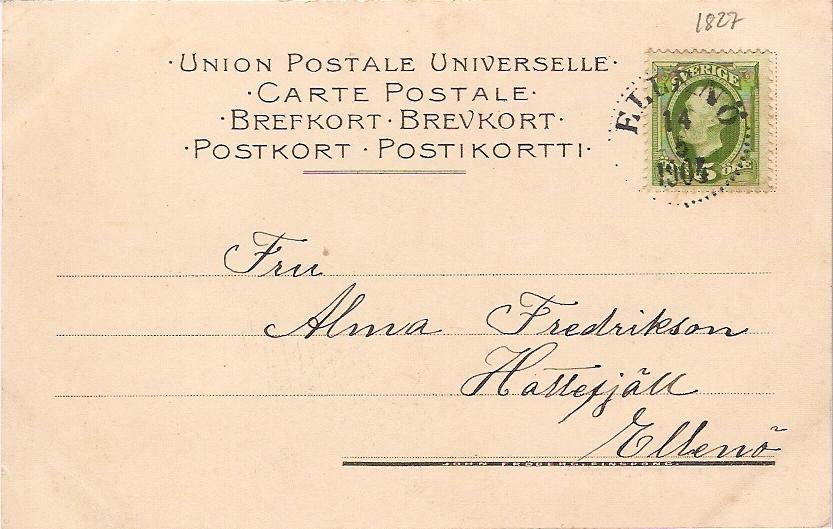 1827
·UNION POSTALE UNIVERSELLE·
·CARTE POSTALE·
·BREFKORT·BREVKORT·
·POSTKORT·POSTIKORTTI·
SVERIGE
5 ÖRE
ELLENÖ
14
1904
Fru
Alma Fredrikson
Hattefjäll
Ellenö
JOHN FRÖBERG, FINSPONG.